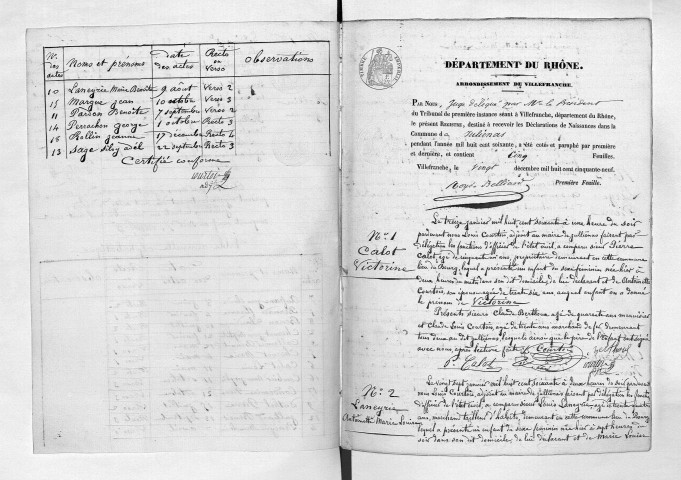 Nos des actes
Noms et prénoms
date des actes
Recto ou Verso
Observations
10 Laneyrie Marie Benoite 9 août Verso 2
15 Margue jean 10 octobre Verso 3
11 Pardon Benoite 7 septembre Verso 2
14 Perrachon george 1 octobre Recto 3
18 Rollin jeanne 17 décembre Recto 4
13 Sage 22 septembre Recto 3
Certifié conforme
adj
DÉPARTEMENT DU RHÔNE.
ARRONDISSEMENT DE VILLEFRANCHE.
PAR NOUS, juge délégué par Mr le Président
du Tribunal de première instance séant à Villefranche, département du Rhône,
le présent REGISTRE, destiné à recevoir les Déclarations de Naissances dans la
Commune de Julienas
pendant l'année mil huit cent soixante, a été coté et paraphé par première
et dernière, et contient Cinq Feuilles.
Villefranche, le vingt décembre mil huit cent cinquante-neuf.
Première Feuille.
No. 1
Calot
Victorine
Le treize janvier mil huit cent soixante à une heure du soir
pardevant nous Louis Courtois, adjoint au maire de Jullienas faisant par
délégation les fonctions d'officier de l'état civil, a comparu sieur Pierre
Calot agé de cinquante un ans, propriétaire demeurant en cette commune
lieu du Bourg, lequel a présenté un enfant du sexe féminin née hier à
deux heures du matin dans son dit domicile, de lui déclarant et de Antoinette
Courtois son épouse agée de trente six ans, auquel enfant on a donné
le prénom de Victorine
Présents sieurs Claude Berthoux agé de quarante ans menuisier
et Claude Louis Courtois, agé de trente ans marchand de fer demeurant
tous deux au dit Jullienas, lesquels ainsi que le père de l'enfant ont signé
avec nous, après lecture faite Courtois
P. Calot
No. 2
Laneyrie
Antoinette Marie Louise
Le vingt sept janvier mil huit cent soixante à deux heures du soir pardevant
nous Louis Courtois, adjoint au maire de Jullienas faisant par délégation les fonctions
d'officier de l'état civil, a comparu sieur Louis Laneyrie agé de trente quatre
ans, marchand tailleur d'habits, demeurant en cette commune lieu du Bourg
lequel a présenté un enfant du sexe féminin née hier à sept heures du
soir dans son dit domicile, de lui déclarant et de Marie Louise